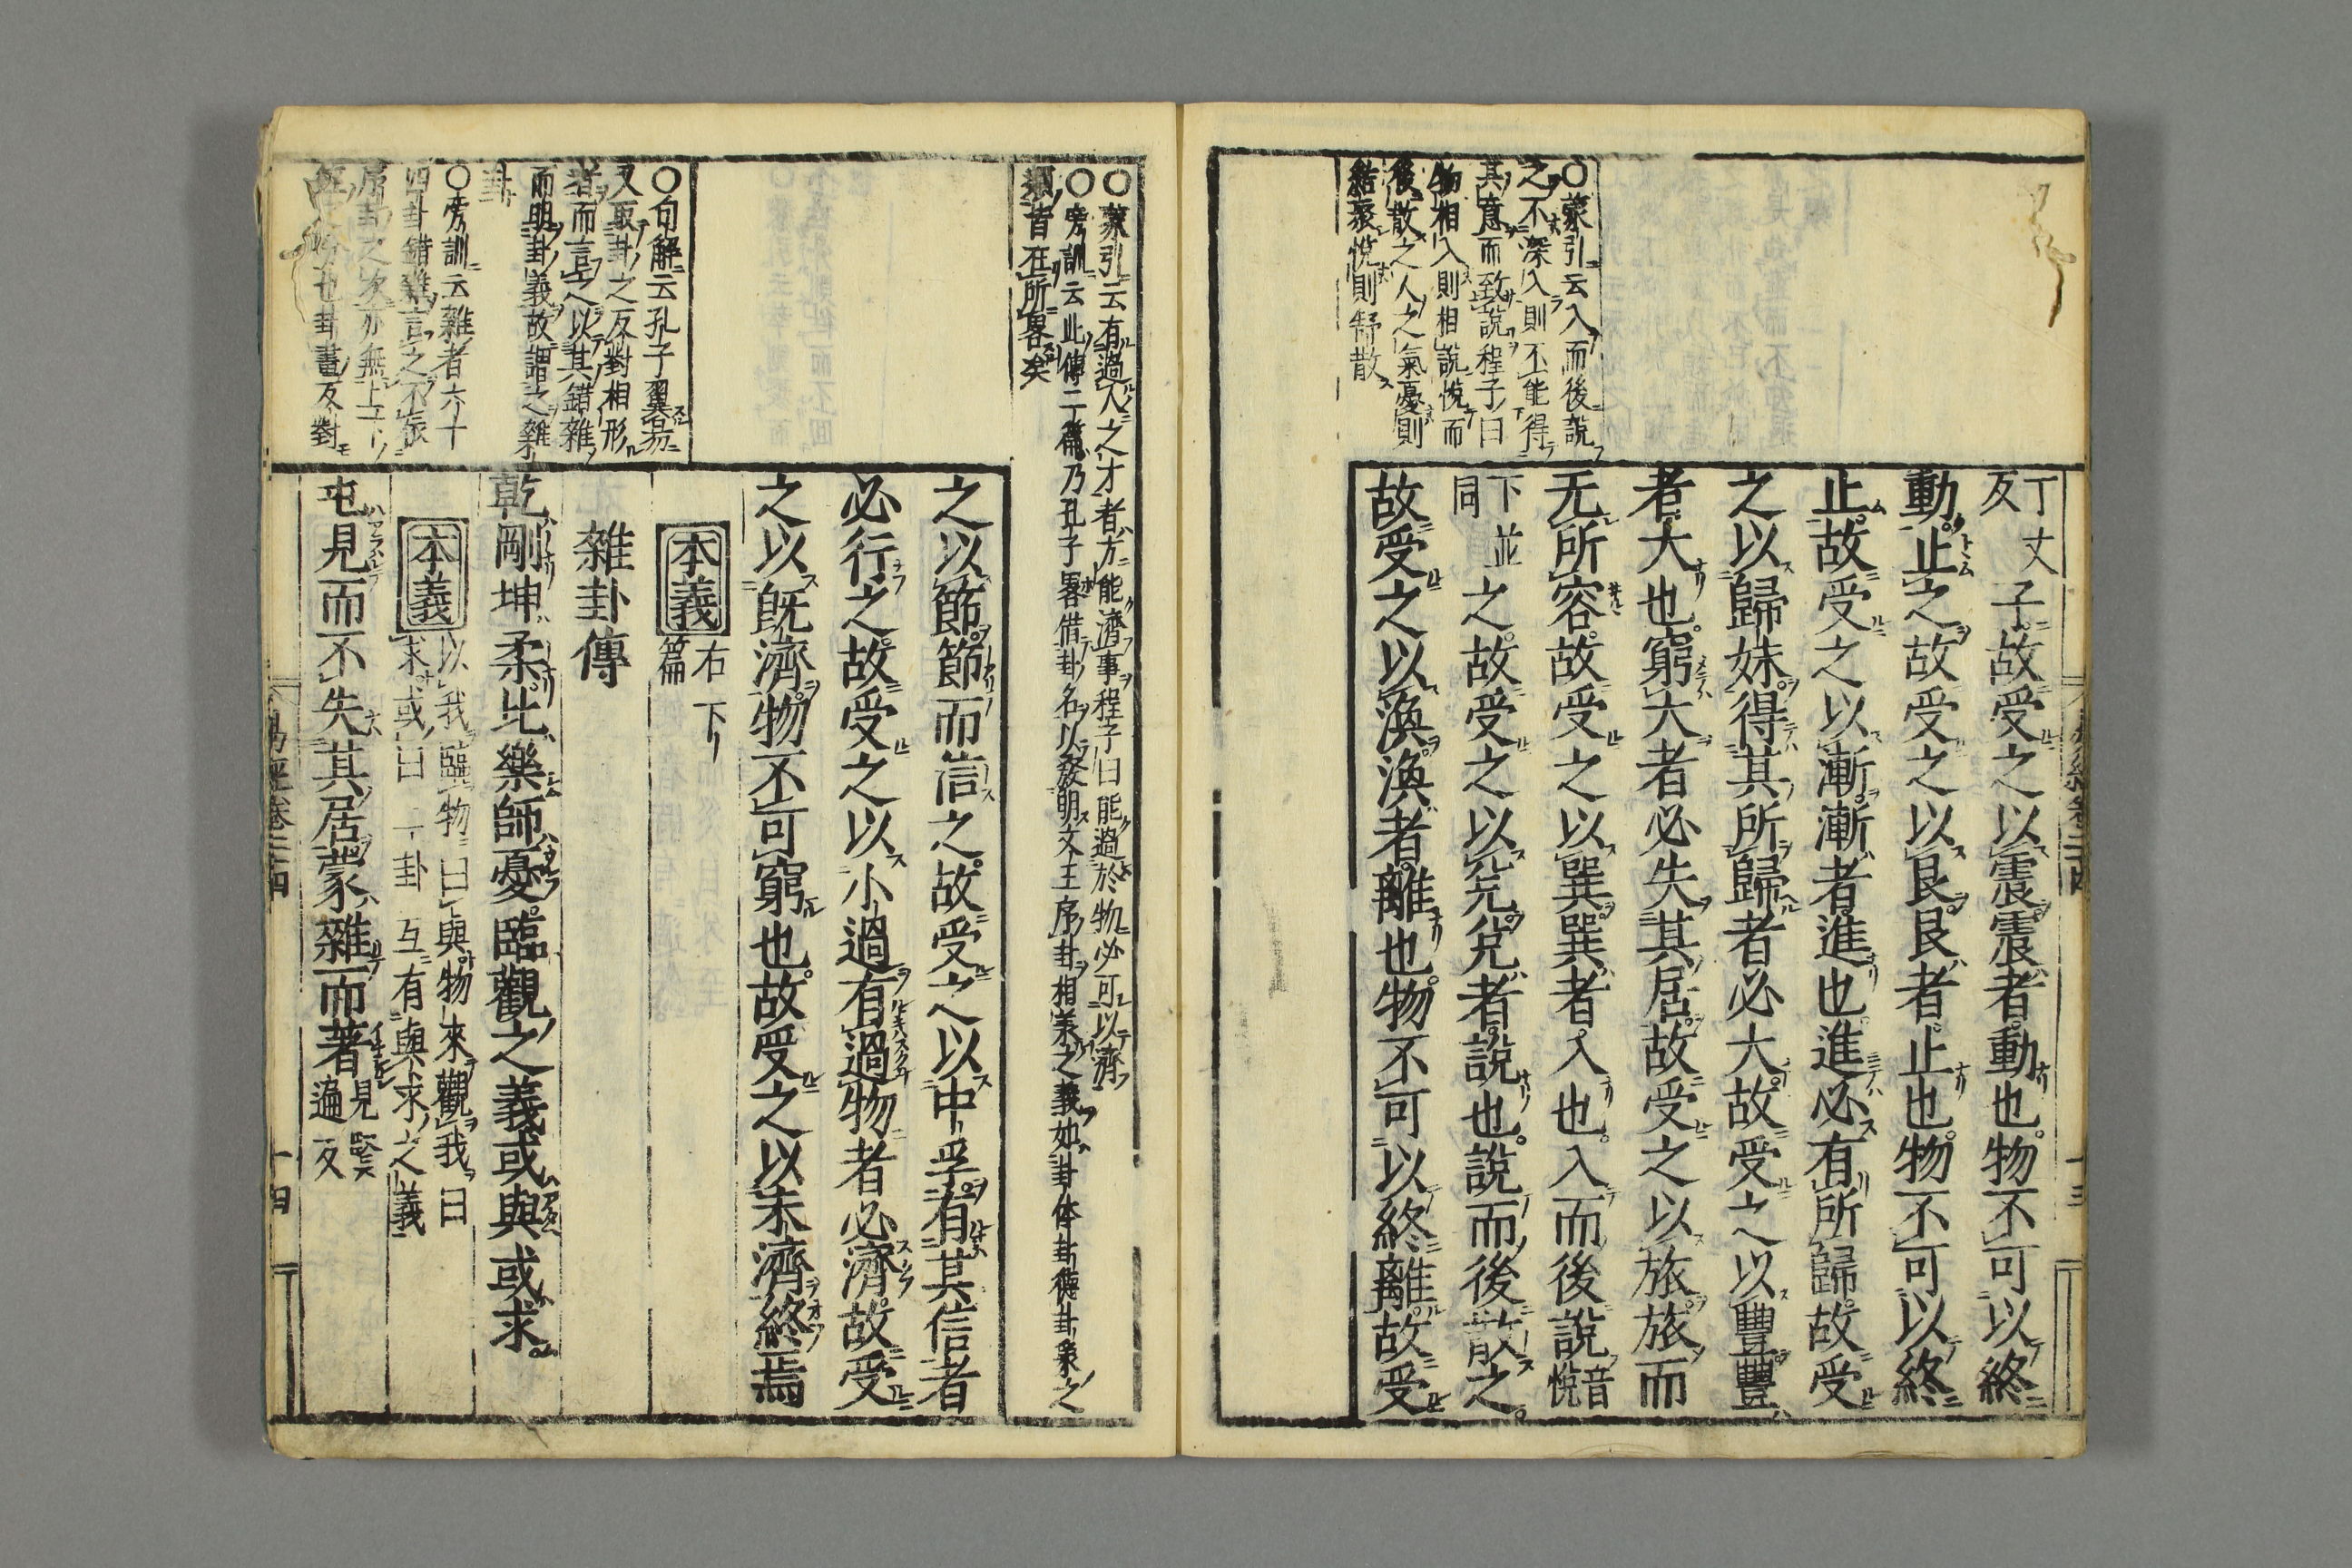 丁丈反子故受之以震震者動也物不可以終
動止之故受之以艮艮者止也物不可以終
止故受之以漸漸者進也進必有所歸故受
之以歸妹得其所歸者必大故受之以豐豐
者大也窮大者必失其居故受之以旅旅而
无所容故受之以巽巽者入也入而後說音悅
下並同之故受之以兌兌者說也說而後散之
故受之以渙渙者離也物不可以終離故受
○蒙引云入而後說
之不深入則不能得
其意而致說程子曰
物相入則相說悅而
後散之人之氣憂則
結聚悅則舒散
○蒙引云有過人之才者方能濟事程子曰能過於物必可以濟
○旁訓云此傳二篇乃孔子畧借卦名以發明文王序卦相羙之義如卦体卦德卦象之
類皆在所畧矣
之以節節而信之故受之以中孚有其信者
必行之故受之以小過有過物者必濟故受
之以既濟物不可窮也故受之以未濟終焉
本義 右下篇
雜卦傳
乾剛坤柔比樂師憂臨觀之義或與或求
本義 以我臨物曰與物來觀我曰
求或曰二卦互有與求之義
屯見而不失其居蒙雜而著見賢遍反
○句解云孔子翼易
又取卦之反對相形
者而言之以其錯雜
而明卦義故謂之雜
卦
○旁訓云雜者六十
四卦錯雜言之不依
序卦之次亦無上下
也卦畫反對
易經卷二十四
十四